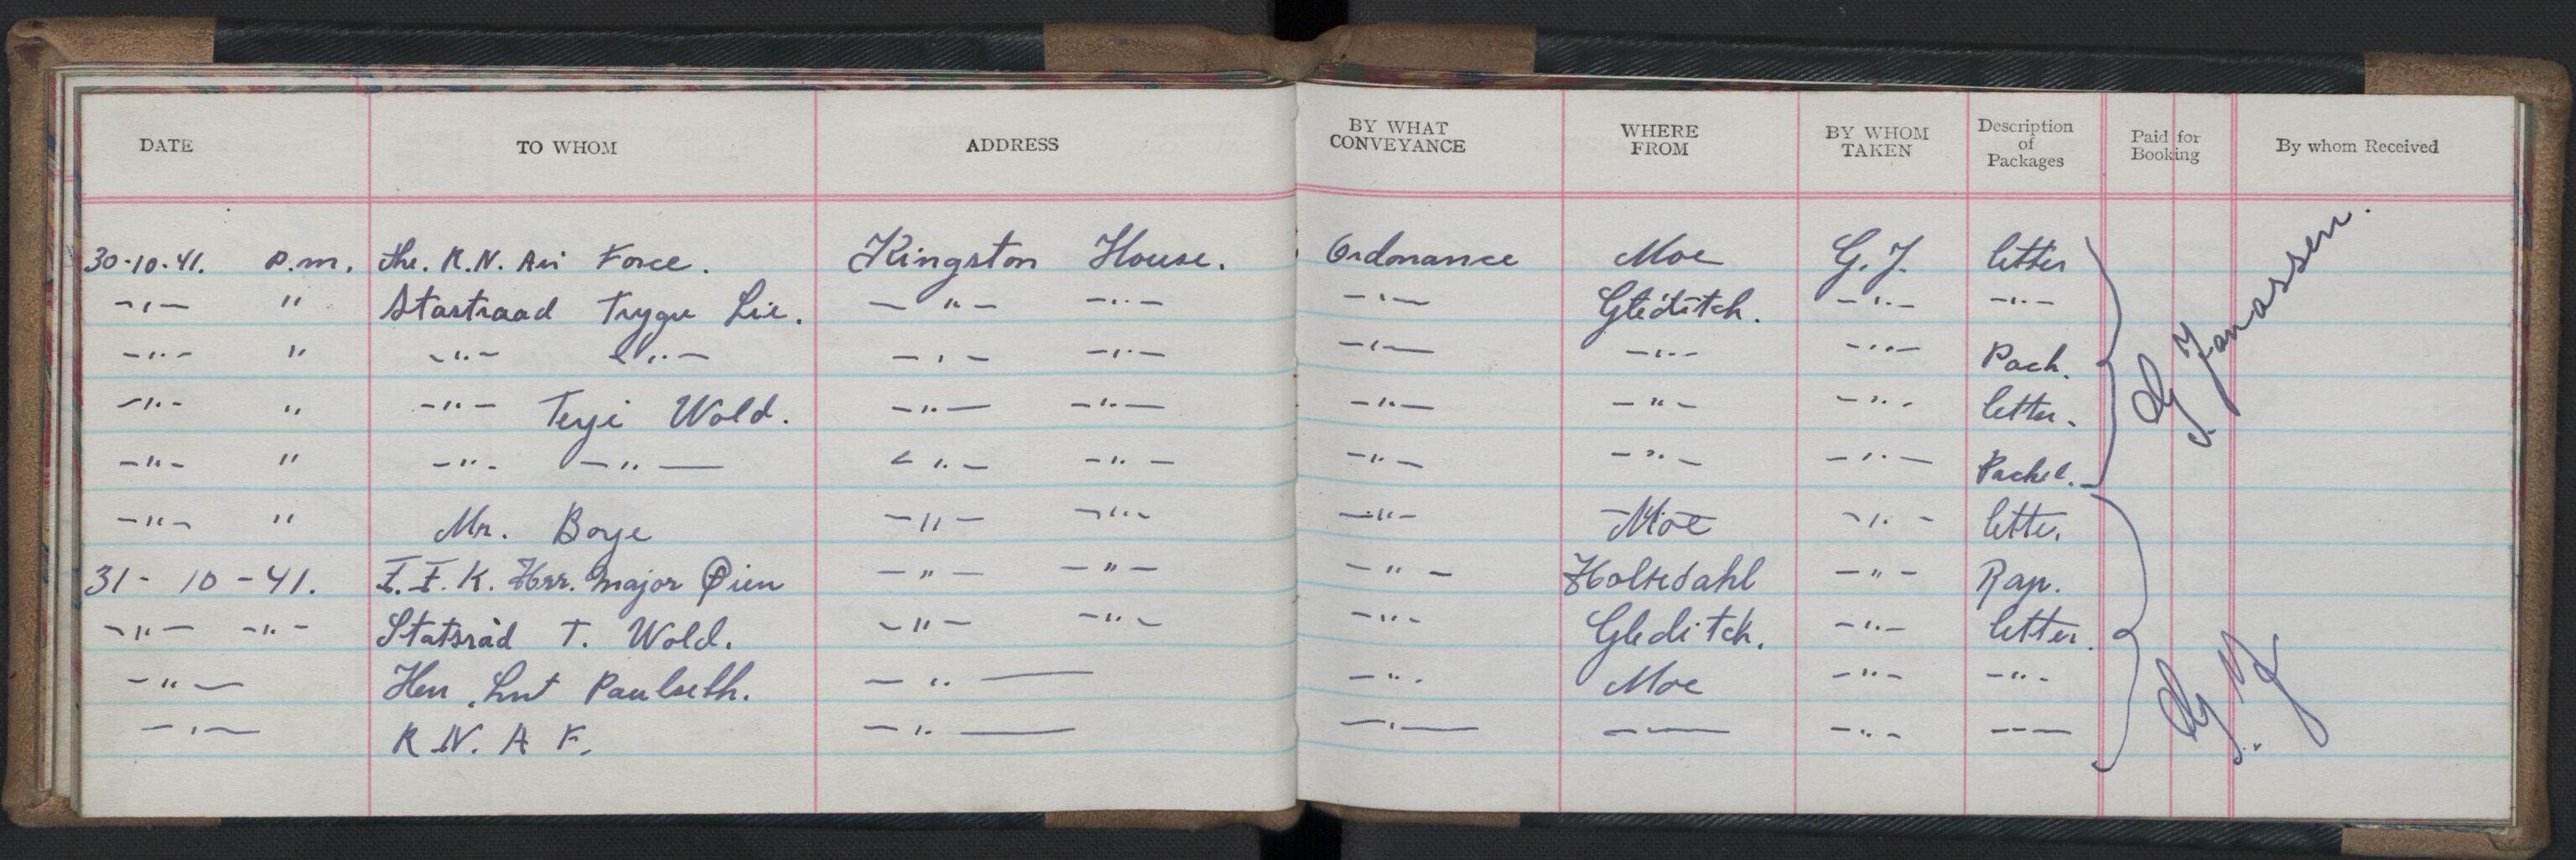 DATE TO WHOM ADDRESS BY WHAT CONVEYANCE WHERE FROM BY WHOM TAKEN Description of Packages Paid for Booking By whom Received
30-10-41. p.m. the. R.N. Air Force. Kingston House. Ordonance Moe G.J. letter
-"- " Stastraad Trygve Lie. -"- -"- -"- Gleditch. -"- -"-
-"- " -"- -"- -"- -"- -"- -"- -"- Pack.
-"- " -"- Terje Wold. -"- -"- -"- -"- -"- letter.
-"- " -"- -"- -"- -"- -"- -"- -"- Packel.
-"- " Mr. Boye -"- -"- -"- Moe -"- letter.
31-10-41. F.F.K. Herr. Major Øien -"- -"- -"- Holtedahl -"- Rap.
-"- -"- Statsråd T. Wold. -"- -"- -"- Gleditck. -"- letter.
-"- Herr. Lnt Paulseth. -"- -"- Moe -"- -"-
-"- R.N. A F. -"- -"- -"- -"- -"-
G Jonassen.
G J.